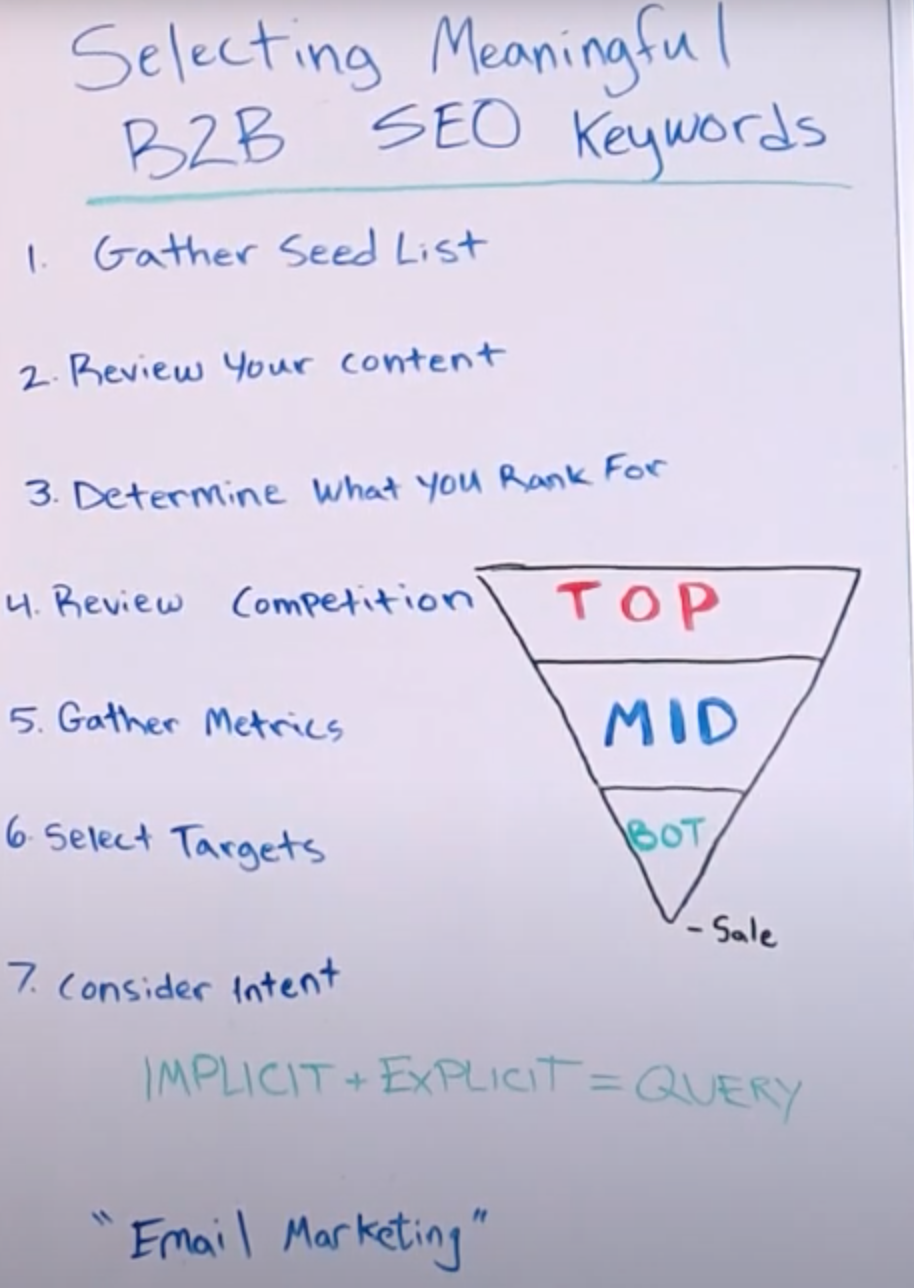 Selecting Meaningful
B2B SEO Keywords
1. Gather Seed List
2. Review Your Content
3. Determine What You Rank For
4. Review Competition
TOP
5. Gather Metrics
MID
6. Select Targets
BOT
- Sale
7. Consider Intent
IMPLICIT + EXPLICIT = QUERY
"Email Marketing"